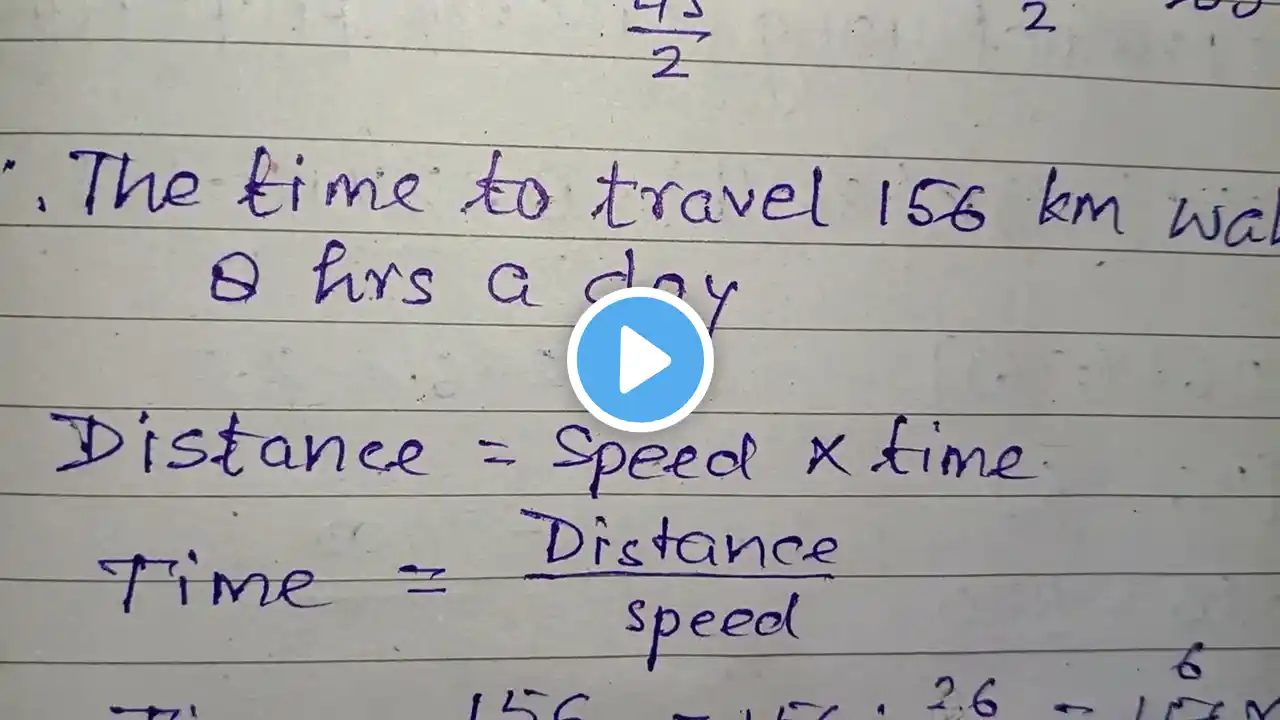 2
2
∴ The time to travel 156 km
8 hrs a day
Distance = Speed × time
Time = Distance
speed
6
156 = 26